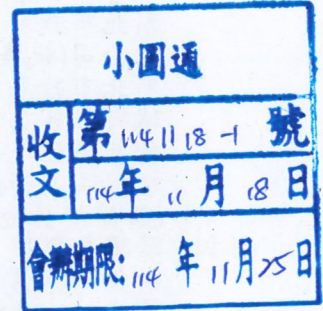 小圓通
收文 第1141118-1號
114年11月18日
會辦期限:114年11月25日